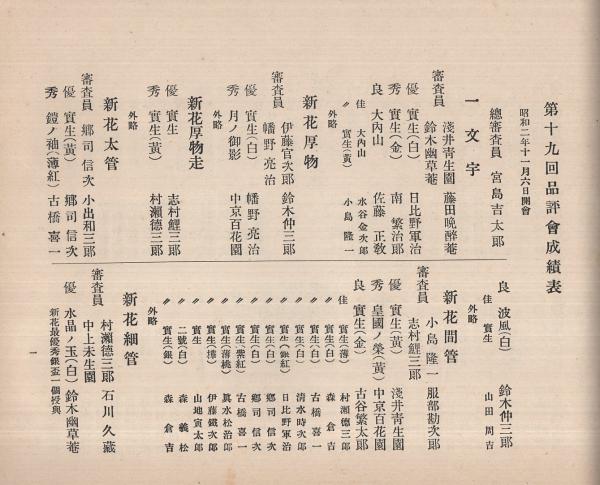 第十九回品評會成績表
昭和二年十一月六日開會
總審査員 宮島吉太郎
一文字
審査員 淺井靑生園 藤田晩醉菴
鈴木幽草菴
優 實生(白) 日比野軍治
秀 實生(金) 南繁治郎
良 大內山 佐藤正敎
佳 大內山 水谷金次郎
〃 實生(黃) 小島隆一
外略
新花厚物
審査員 伊藤官次郎 鈴木仲三郎
幡野亮治
優 實生(白) 幡野亮治
秀 月ノ御影 中京百花園
外略
新花厚物走
優 實生 志村鯉三郎
秀 實生(黃) 村瀨德三郎
外略
新花太管
審査員 鄕司信次 小出和三郎
優 實生(黃) 鄕司信次
秀 鎧ノ袖(薄紅) 古橋喜一
良 波風(白) 鈴木仲三郎
佳 實生 山田周吉
外略
新花間管
審査員 小島隆一 服部勘次郎
志村鯉三郎
優 實生(黃) 淺井靑生園
秀 皇國ノ榮(黃) 中京百花園
良 實生(金) 古谷繁太郎
佳 實生(薄) 村瀨德三郎
〃 實生(白) 森倉吉
〃 實生(白) 古橋喜一
〃 實生(白) 淸水時次郎
〃 實生(銀紅) 日比野軍治
〃 實生(白) 鄕司信次
〃 實生(白) 鄕司信次
〃 實生(紫紅) 古橋喜一
〃 實生(薄桃) 眞水松治郎
〃 實生(樺) 伊藤鐵次郎
〃 實生 山地寅太郎
〃 二號(白) 森義松
〃 實生(銀) 森倉吉
外略
新花細管
審査員 村瀨德三郎 石川久藏
中上未生園
優 水晶ノ玉(白) 鈴木幽草菴
新花最優秀銀盃一個授與
一